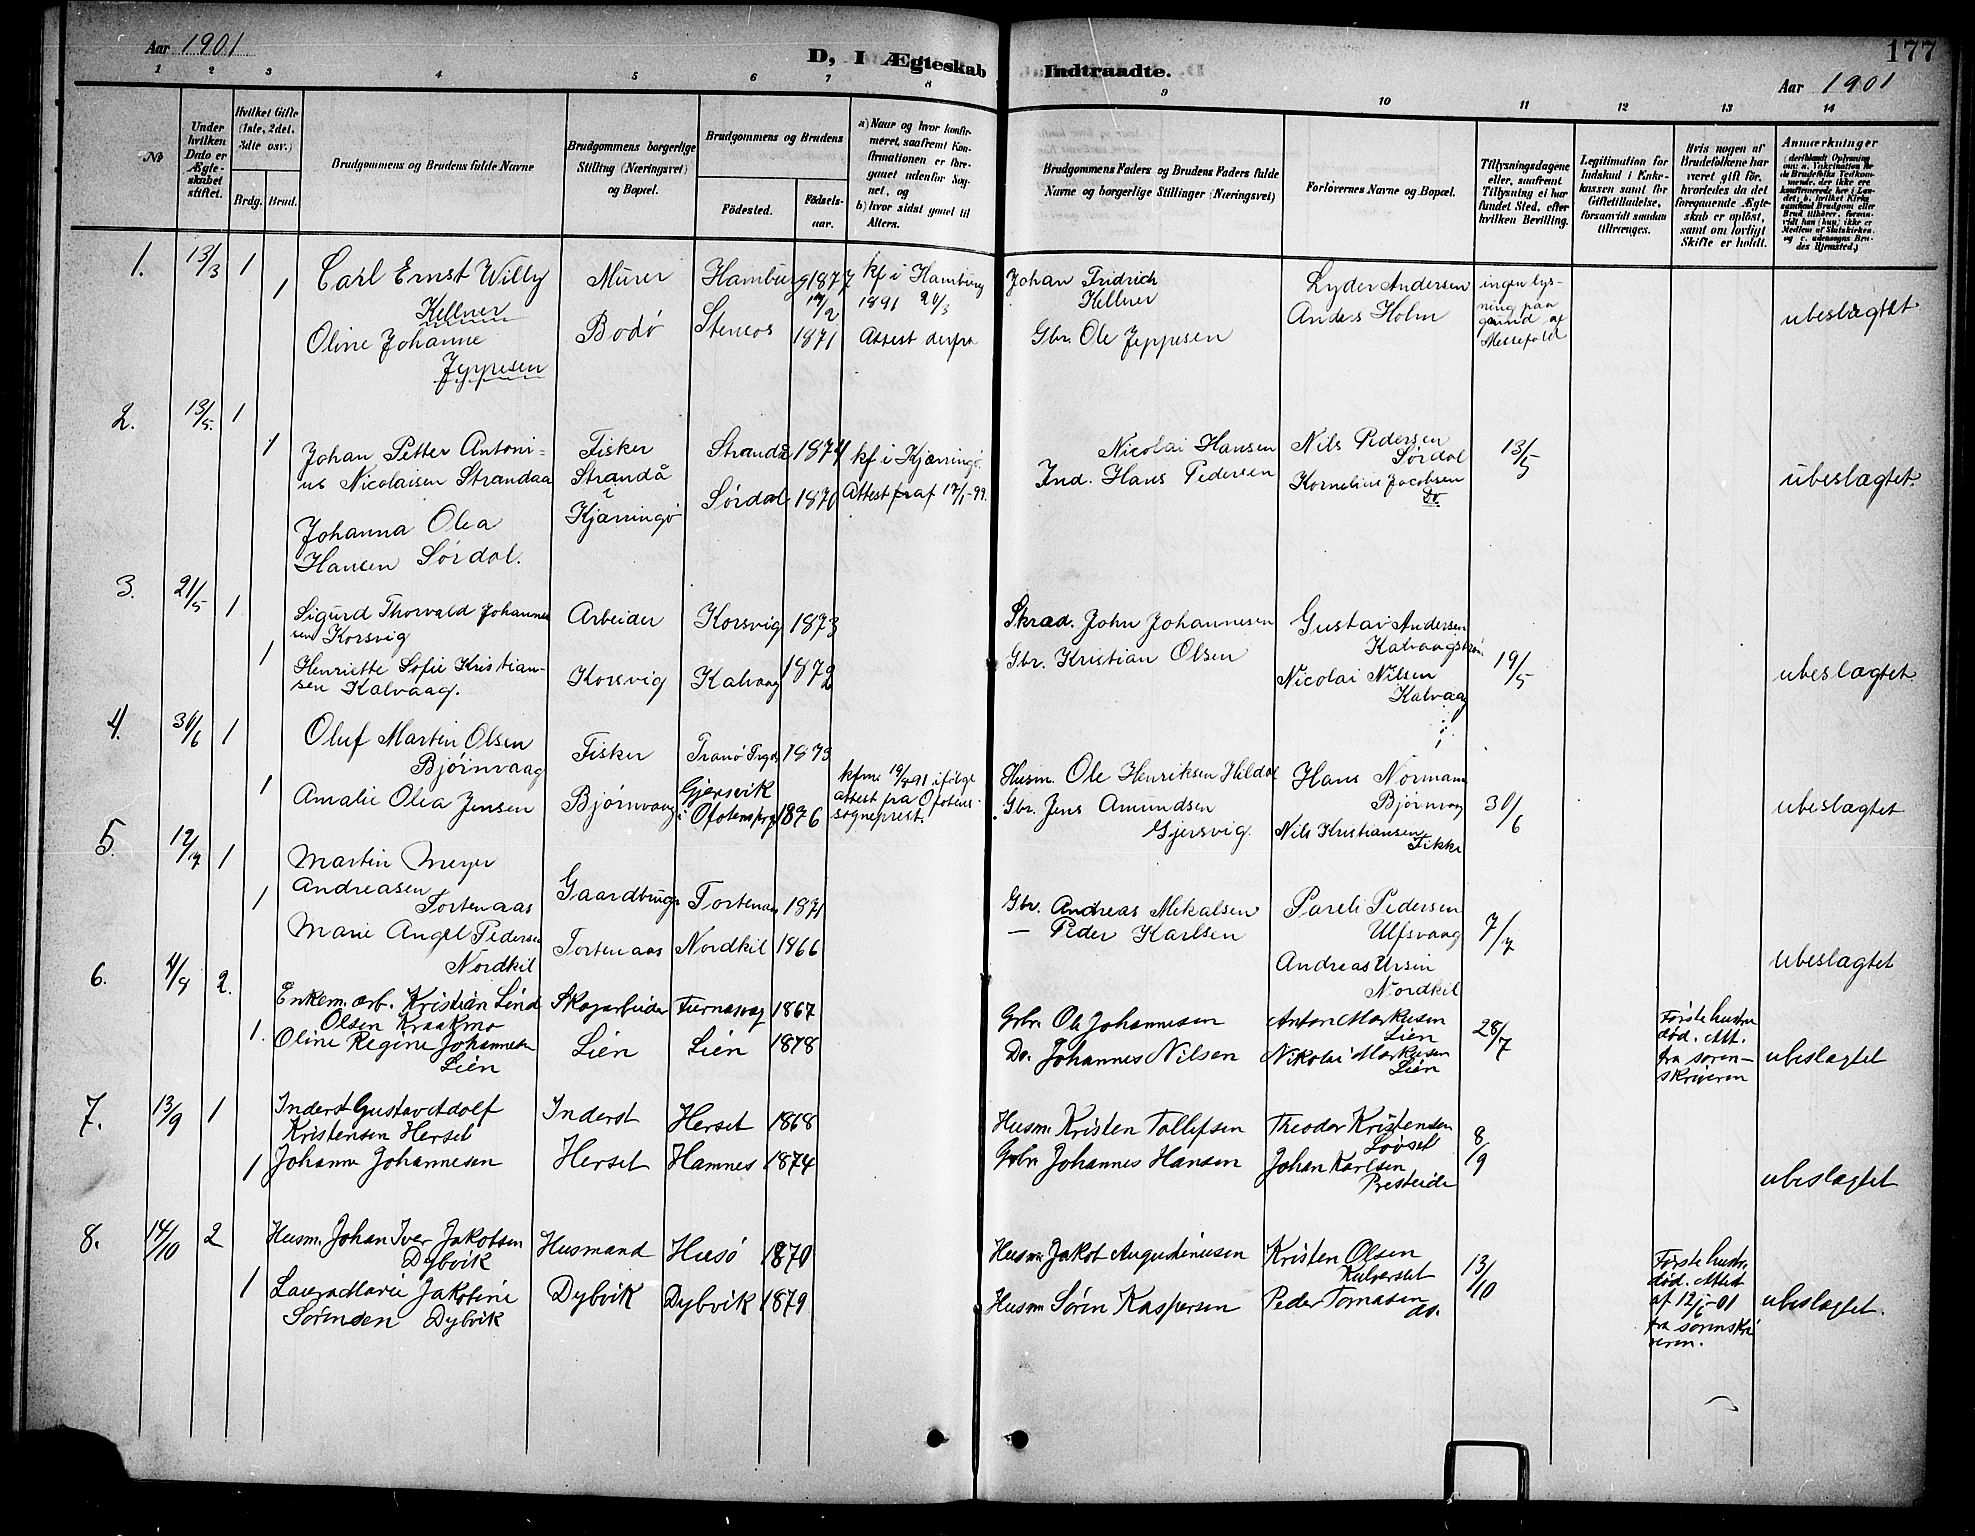 Aar 1901
D, I Ægteskab Indtraadte.
177
Aar 1901
1 2 3 4 5 6 7 8 9 10 11 12 13 14
No
Under hvilken Dato er Ægteskabet stiftet.
Hvilket Gifte (1ste, 2det, 3die osv.)
Brdg. Brud.
Brudgommens og Brudens fulde Navne
Brudgommens borgerlige Stilling (Næringsvei) og Bopæl.
Brudgommens og Brudens
Fødested. Fødselsaar.
a) Naar og hvor konfirmeret, saafremt Konfirmationen er foregaaet udenfor Sognet, og
b) hvor sidst gaaet til Alters.
Brudgommens Faders og Brudens Faders fulde Navne og borgerlige Stillinger (Næringsvei)
Forlovernes Navne og Bopæl.
Tillysningsdagene eller, saafremt Tillysning ei har fundet Sted, efter hvilken Bevilling.
Legitimation for Indskud i Enkekassen samt for Giftetilladelse, forsaavidt saadan tiltrænges.
Hvis nogen af Brudefolkene har været gift før, hvorledes da det foregaaende Ægteskab er opløst, samt om lovligt Skifte er holdt.
Anmærkninger
1. 13/3 1
1
Carl Ernst Willy
Kellner
Oline Johanne
Jeppesen
Murer
Bodø
Hamburg 1877
17/2
Stensos 1871
kf i Hamburg
1891 20/3
Attest derfra
Johan Fridrich
Kellner
Gbr. Ole Jeppesen
Lyder Andersen
Anders Holm
ingen lys-
ning paa
grund af
Messefald
ubeslægtet
2. 13/5. 1
1
Johan Petter Antoni=
us Nicolaisen Strandaa
Johanna Olea
Hansen Sørdal.
Fisker
Strandå
i
Kjærringø
Strandå 1874
Sørdal 1870
kf i Kjærringø.
Attest fra af 17/1-99.
Nicolai Hansen
Ind. Hans Pedersen
Nils Pedersen
Sørdal
Kornelius Jacobsen
Do.
13/5
ubeslægtet.
3. 21/5 1
1
Sigurd Thorvald Johannes
sen Korsvig
Henriette Sofie Kristian-
sen Kalvaag.
Arbeider
Korsvig
Korsvig 1873
Kalvaag 1872
Skrad. John Johannesen
Gbr. Kristian Olsen
Gustav Andersen
Nicolai Nilsen
Kalvaag
19/5
ubeslægtet.
4. 30/6 1
1
Oluf Martin Olsen
Bjørnvaag
Amalie Olea Jensen
Fisker
Bjørnvaag
Tranø Prgd 1873
Gjersvik
i Ofotens prg 1876
kfme 19/4 91 ifølge
attest fra Ofotens
sogneprest.
Husm. Ole Henriksen Hildal
Gbr. Jens Amundsen
Gjersvig.
Hans Normann
Bjørnvag
Nils Kristiansen
Fikke
30/6
ubeslægtet
5. 12/7 1
1
Martin Meyer
Andreasen
Tortenaas
Marie Angel Pedersen
Nordkil
Gaardbrug.
Tortenaas
Tortenaas 1871
Nordkil 1866
Gbr. Andreas Mekalsen
— Peder Karlsen
Pareli Pedersen
Ulfsvaag
Andreas Ursin
Nordkil
7/7
ubeslægtet
6. 4/8 2.
1.
Enkem. arb. Kristian Lind
Olsen Kraakmo
Oline Regine Johannesen
Lién
Skogarbeider
Lién
1867
Lién 1878
Grbr. Ole Johannesen
Do. Johannes Nilsen
Anton Markusen
Lién
Nikolai Markusen
Lién
28/7
Første hustru
død. Att.
fra soren-
skriveren
ubeslægtet
7. 13/9 1
1
Inderst Gustav Adolf
Kristensen Herset
Johanna Johannesen
Inderst
Herset
Herset 1868
Hamnes 1874
Husm. Kristen Tollefsen
Grbr. Johannes Hansen
Theodor Kristensen
Løvset
Johan Karlsen
Presteide
8/9
ubeslægtet
8. 14/10 2
1
Husm. Johan Iver Jakobsen
Dybvik
Laura Marie Jakobine
Sørensen Dybvik
Husmand
Dybvik
Husø 1870
Dybvik 1879
Husm. Jakob Augustinusen
Husm. Søren Kaspersen
Kristen Olsen
Kalverset
Peder Tomasen
do.
13/10
Første hustru
død. Attest
af 12/6-01
fra sorenskri
veren.
ubeslægtet.